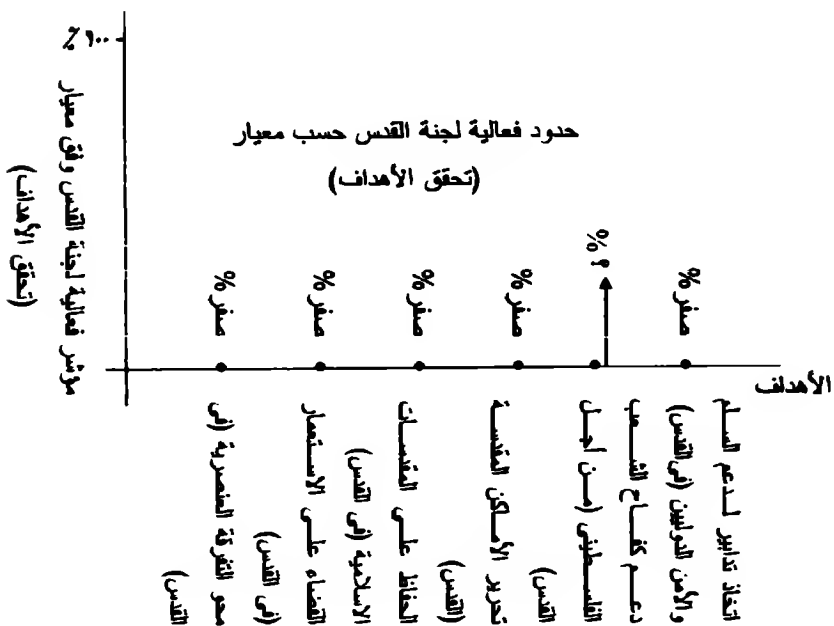 ١٠٠ ٪
مؤشر فعالية لجنة القدس وفق معيار
(تحقق الأهداف)
حدود فعالية لجنة القدس حسب معيار
(تحقق الأهداف)
صفر%
صفر%
صفر%
صفر%
؟ %
صفر%
الأهداف
اتخاذ تدابير لـدعم السلم
والأمن الدوليين (فى القدس)
دعـم كفـاح الشـعب
الفلسـطينى (مـن أجـل
القدس)
تحرير الأمـاكن المقدسـة
(القدس)
الحفاظ علـى المقدسـات
الاسلامية (فى القدس)
القضاء علـى الاستـعمار
(فى القدس)
محو التفرقة العنصرية (فى
القدس)